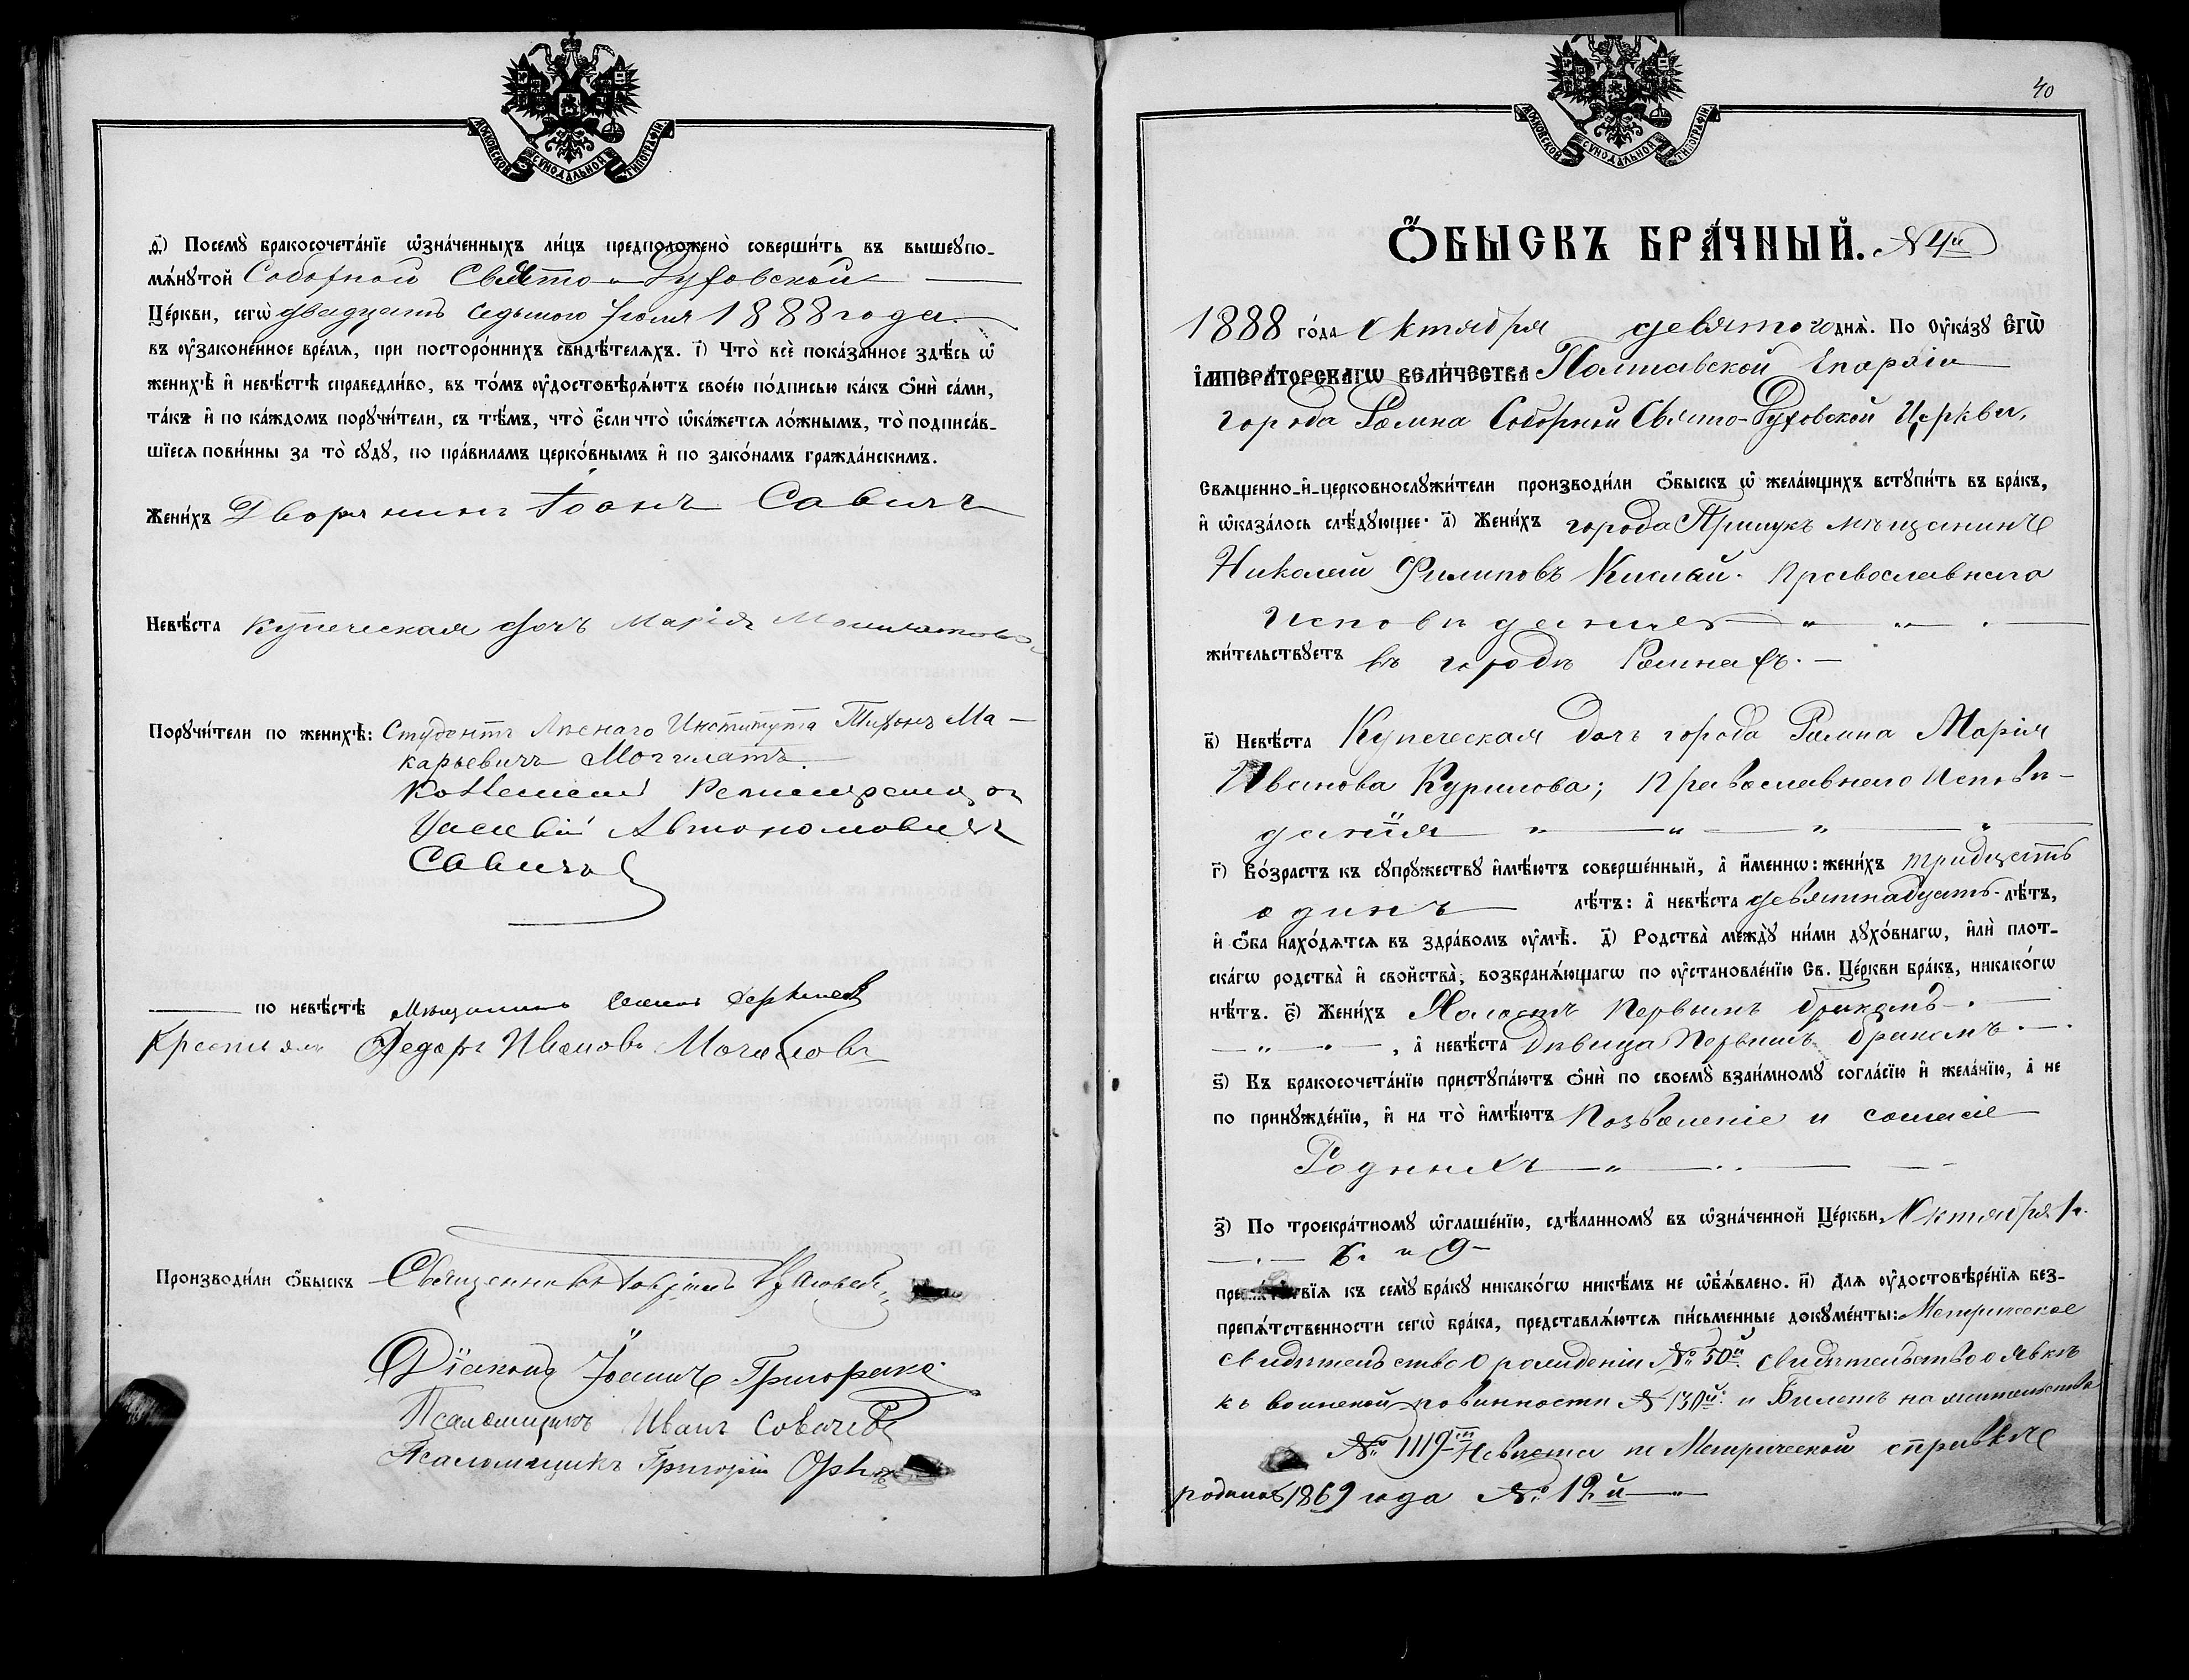 МОСКОВСКОЙ СѴНОДАЛЬНОЙ ТИПОГРАФІИ
ѳ҃) Посемꙋ̀ бракосочета́нїе ѡ҆зна́ченныхъ ли́цъ предположено̀ соверши́ть въ вышеꙋпо-
мѧ́нꙋтой Соборной Свято-Духовской
Це́ркви, сегѡ̀ двадцать седьмого Іюля 1888 года
въ ᲂу҆зако́ненное вре́мѧ, при посторо́ннихъ свидѣ́телѧхъ. і҃) Что̀ всѐ пока́занное здѣ́сь ѡ҆
женихѣ̀ и҆ невѣ́стѣ справедли́во, въ то́мъ ᲂу҆достовѣрѧ́ютъ свое́ю по́дписью ка́къ ѻ҆нѝ са́ми,
та́къ и҆ по ка́ждомъ порꙋчи́тели, съ тѣ́мъ, что̀ є҆́сли что̀ ѡ҆ка́жетсѧ ло́жнымъ, то̀ подписа́в-
шїесѧ пови́нны за то̀ сꙋдꙋ̀, по пра́виламъ церко́внымъ и҆ по зако́намъ гражда́нскимъ.
Жени́хъ Дворянинъ Іоанъ Савичъ
Невѣ́ста Купеческая дочь Марія
Порꙋчи́тели по женихѣ̀: Студентъ Лѣснаго Института Тихонъ Ма-
карьевичъ Могилатъ.
Автономовичъ
Савичъ
по невѣ́стѣ Мѣщанинъ
Федоръ Ивановъ
Производи́ли ѻ҆́быскъ Священникъ
Діаконъ Іоаннъ Григора
Псаломщикъ Иванъ
Псаломщикъ Григорій
40
МОСКОВСКОЙ СѴНОДАЛЬНОЙ ТИПОГРАФІИ
Ѻ҆́БЫСКЪ БРА́ЧНЫЙ. № 4й
1888 го́да Октября девятого днѧ̀. По ᲂу҆ка́зꙋ Є҆ГѠ̀
І҆МПЕРА́ТОРСКАГѠ ВЕЛИ́ЧЕСТВА Полтавской Епархіи
города Ромна Соборной Свято-Духовской Церкви,
Свѧщенно-и҆-церковнослꙋжи́тели производи́ли ѻ҆́быскъ ѡ҆ жела́ющихъ встꙋпи́ть въ бра́къ,
и҆ ѡ҆каза́лось слѣ́дꙋющее: а҃) Жени́хъ города Прилукъ мѣщанинъ
Николай Филиповъ Кислый. Православнаго
Исповѣданія
жи́тельствꙋетъ въ городѣ Ромнахъ.
в҃) Невѣ́ста Купеческая дочь города Ромна Марія
Иванова Курилова; Православнаго Исповѣ-
данія
г҃) Во́зрастъ къ сꙋпрꙋ́жествꙋ и҆мѣ́ютъ соверше́нный, а҆ и҆́меннѡ: жени́хъ тридцать
одинъ лѣ́тъ: а҆ невѣ́ста девятнадцать лѣ́тъ,
и҆ ѻ҆́ба нахо́дѧтсѧ въ здра́вомъ ᲂу҆мѣ̀. д҃) Родства̀ междꙋ̀ ни́ми дꙋхо́внагѡ, и҆лѝ плот-
ска́гѡ родства̀ и҆ сво́йства̀, возбранѧ́ющагѡ по ᲂу҆становле́нїю Св. Це́ркви бра́къ, никако́гѡ
нѣ́тъ. є҃) Жени́хъ Холостъ Первымъ бракомъ
, а҆ невѣ́ста Дѣвица Первымъ бракомъ
ѕ҃) Къ бракосочета́нїю пристꙋпа́ютъ ѻ҆нѝ по своемꙋ̀ взаи́мномꙋ согла́сїю и҆ жела́нїю, а҆ не
по принꙋжде́нїю, и҆ на то̀ и҆мѣ́ютъ Позволеніе и согласіе
Родныхъ
з҃) По троекра́тномꙋ ѡ҆глаше́нїю, сдѣ́ланномꙋ въ ѡ҆зна́ченной Це́ркви, Октября 1.
6. и 9
препѧ́тствїѧ къ семꙋ̀ бра́кꙋ никако́гѡ никѣ́мъ не ѡ҆б̾ѧ́влено. и҃) Длѧ ᲂу҆достовѣре́нїѧ без-
препѧ́тственности сегѡ̀ бра́ка, представлѧ́ютсѧ пи́сьменные докꙋме́нты: Метрическое
свидѣтельство о рожденіи № 50й. свидѣтельство о явкѣ
къ воинской повинности № 130й. и Билетъ на жительство
№ 1119 Невѣста по Метрической справкѣ
родилась 1869 года № 12й